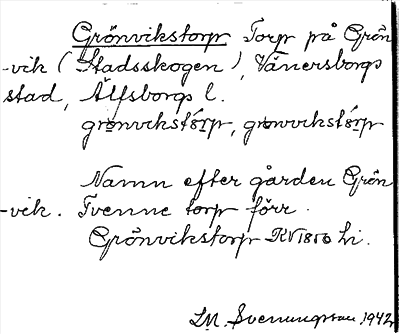 Grönvikstorp Torp på Grön
-vik (Stadsskogen), Vänersborgs
stad, Älfsborgs l.
grønvikstórp, grønvikstórp
Namn efter gården Grön
-vik. Tvenne torp förr.
Grönvikstorp RV1850 hi.
LM. Svenungsson 1942